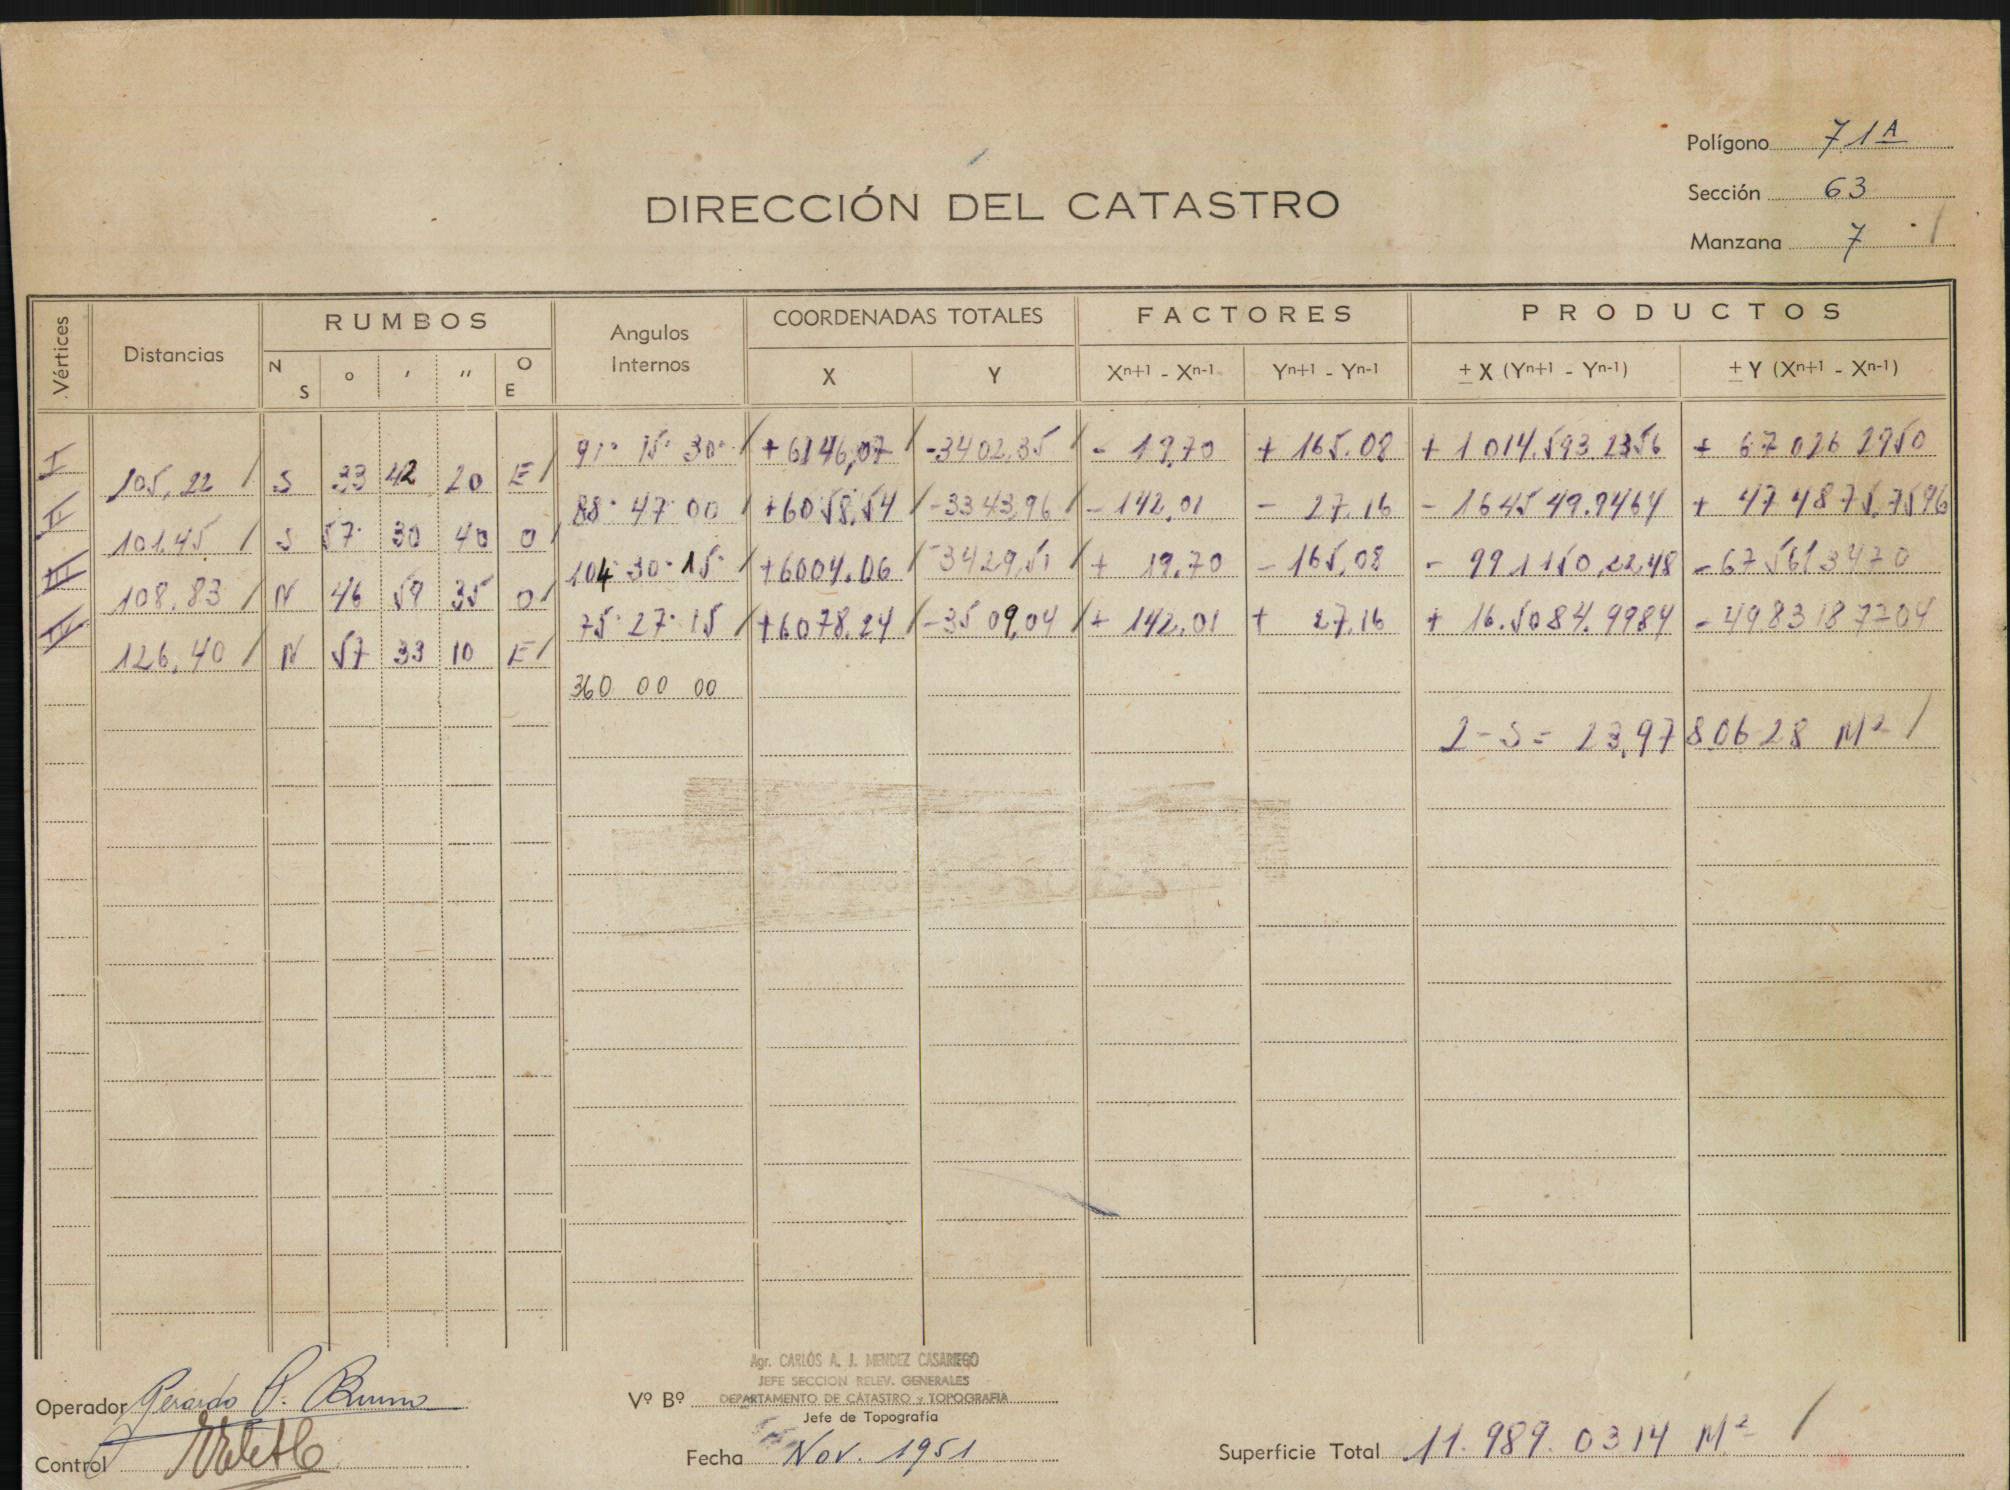 Polígono 71A
Sección 63
Manzana 7 /
DIRECCIÓN DEL CATASTRO
Vértices Distancias RUMBOS Angulos Internos COORDENADAS TOTALES FACTORES PRODUCTOS
N S ° ' '' O E X Y Xn+1 - Xn-1 Yn+1 - Yn-1 ± X (Yn+1 - Yn-1) ± Y (Xn+1 - Xn-1)
I 91° 15' 30'' / +6146,07 / -3402,35 / - 19,70 + 165.08 + 1014.593.2356 + 67026 2950
105,22 / S 33 42 20 E /
II 88° 47' 00 / +6058,54 / -3343,96 / - 142,01 - 27,16 - 164549.9464 + 474875,7596
101.45 / S 57° 30 40 O /
III 104° 30' 15'' / +6004.06 / -3429,51 / + 19.70 - 165,08 - 991150,2248 - 67561 3470
108,83 / N 46 59 35 O /
IV 75° 27' 15 / +6078,24 / -3509,04 / + 142,01 + 27,16 + 16.5084.9984 - 498318 7704
126,40 / N 57 33 10 E /
360 00 00
2-S = 23,978.0628 M² /
Operador Gerardo P. Bruno
Control
Vº Bº Agr. CARLOS A. J. MENDEZ CASARIEGO
JEFE SECCION RELEV. GENERALES
DEPARTAMENTO DE CATASTRO y TOPOGRAFIA
Jefe de Topografía
Fecha Nov. 1951
Superficie Total 11.989.0314 M² /